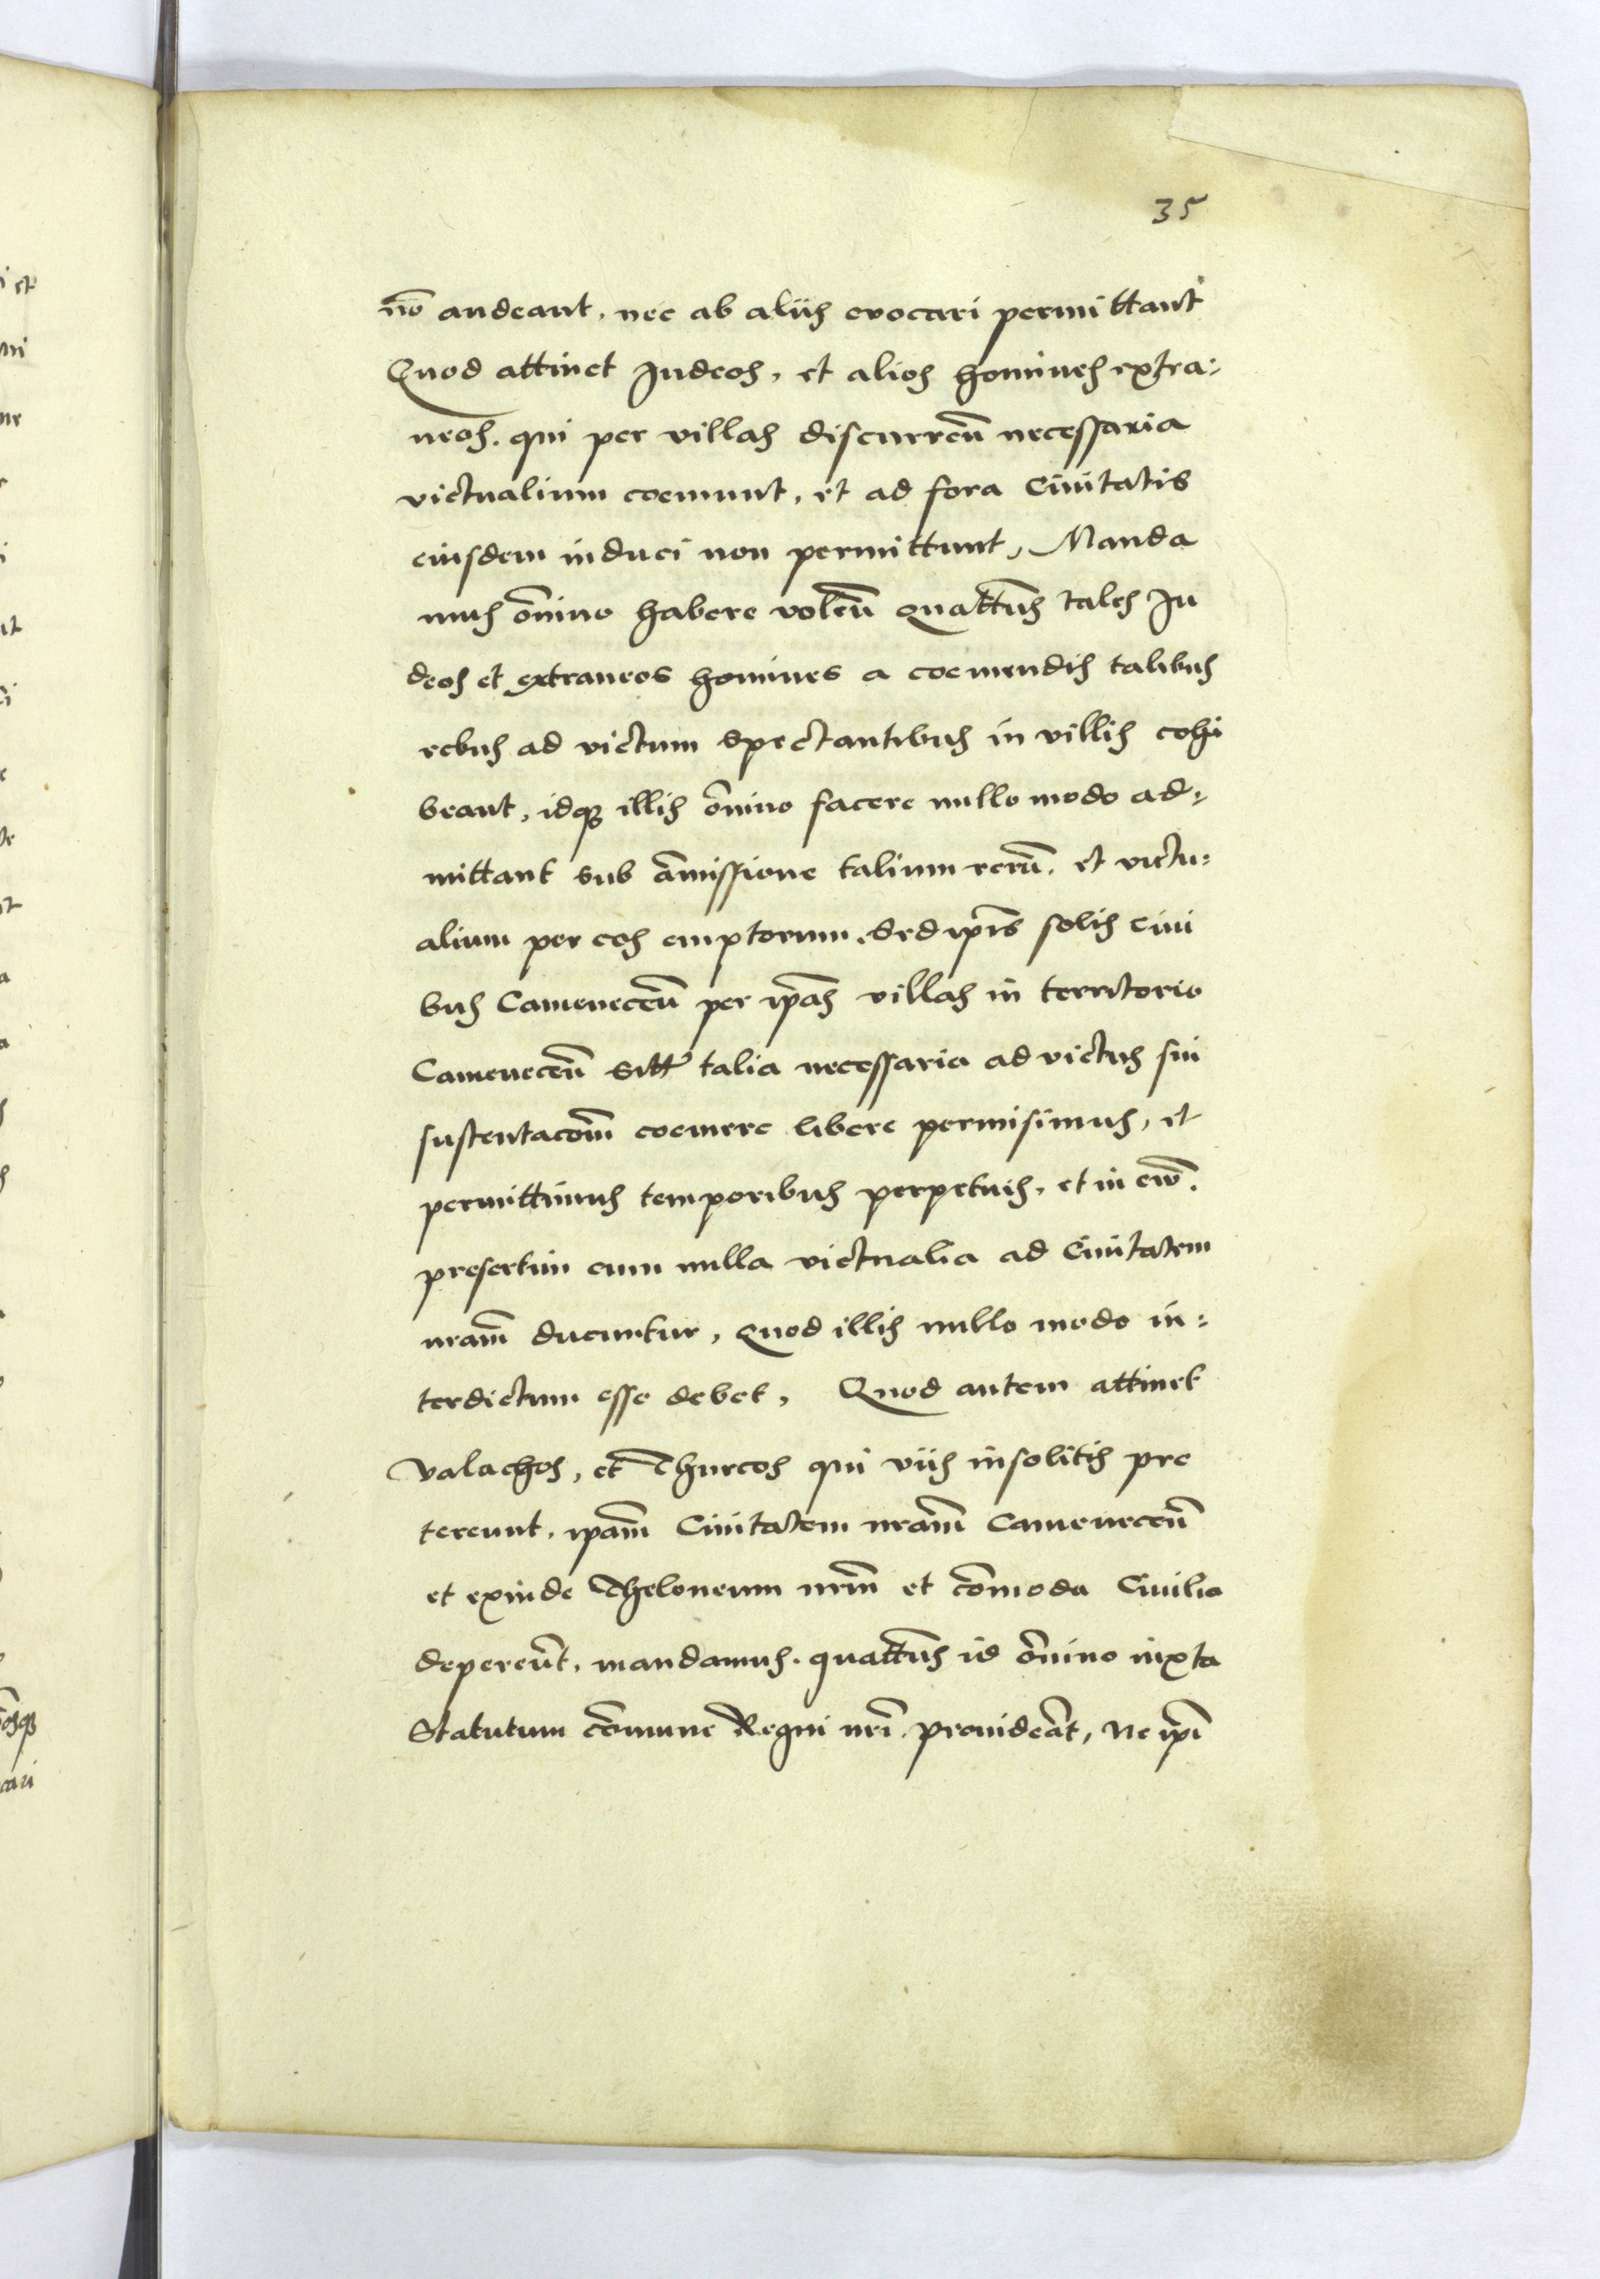 35
nō audeant, nec ab aliis evocari permittant
Quod attinet Judeos, et alios homines extra:
neos. qui per villas discurreñ necessaria
victualium coemunt, et ad fora Civitatis
eiusdem induci non permittunt, Manda
mus ōnino habere voleñ quatt͞us tales Ju
deos et extraneos homines a coemendis talibus
rebus ad victum spectantibus in villis cohi
beant, idq; illis ōnino facere nullo modo ad:
mittant sub āmissione talium rerū. et victu:
alium per eos emptorum. Sed ip̄is solis Civi
bus Cameneceñ per ip̄as villas in territorio
Cameneceñ sitt̃ talia necessaria ad victus sui
sustentacōm coemere libere permisimus, et
permittimus temporibus perpetuis, et in ew̄.
presertim cum nulla victualia ad Civitatem
nrām ducuntur, Quod illis nullo modo in:
terdictum esse debet, Quod autem attinet
Valachos, et Thurcos qui viis insolitis pre
tereunt, ip̄am Civitatem nrām Cameneceñ
et exinde Theloneum nrm̄ et cōmoda Civilia
depereūt, mandamus. quatt͞us id ōnino iuxta
Statutum cōmune Regni nrī. provideāt, Ne ip̄i